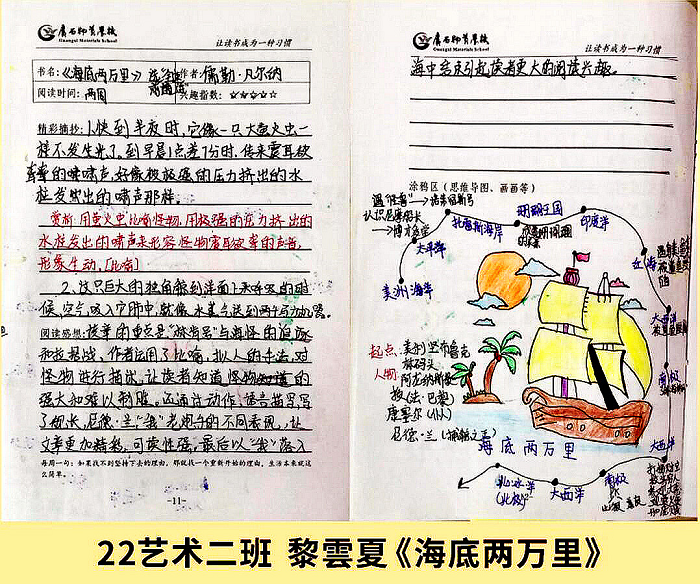 广石师范学校
Guangxi Materials School
让读书成为一种习惯
书名:《海底两万里》
作者:儒勒·凡尔纳
阅读时间:两周
兴趣指数:☆☆☆☆☆
精彩摘抄:1.快到半夜时,它像一只大萤火虫一
样不发生光了,到早晨1点差7分时,传来震耳欲
聋的啸啸声,好像被极强的压力挤出的水
柱发出的啸声那样。
赏析:用萤火虫比喻怪物,用极强的压力挤出的
水柱发出的啸声来形容怪物震耳欲聋的声音,
形象生动。[比喻]
2、这只巨大的独角鲸到洋面上来呼吸的时
候,空气吸入它肺中,就像水蒸气送到两千马力机器。
阅读感想:该章的重点是"林肯号"与海怪的追逐
和接战,作者运用了比喻、拟人的手法对
怪物进行描述,让读者知道怪物知道的
强大和难以制服,还通过动作、语言描写写
了船长,尼德·兰"我"老炮手的不同表现,让
文章更加精彩,可读性强,最后以"我"落入
每周一句:如果找不到坚持下去的理由,那就找一个重新开始的理由,生活本来就这
么简单。
-11-
让读书成为一种习惯
海中结束引起读者更大的阅读兴趣。
涂鸦区(思维导图、画画等)
认识尼摩船长
太平洋
美洲海洋
珊瑚王国
印度洋
红海
大西洋
南极
大西洋
南极
大西洋
北冰洋
(北极)
起点:美利坚布鲁克
林码头
人物:阿龙纳斯教
授(法·巴黎)
康塞尔(仆人)
尼德·兰(捕鲸之王)
海底两万里
22艺术二班 黎雲夏《海底两万里》